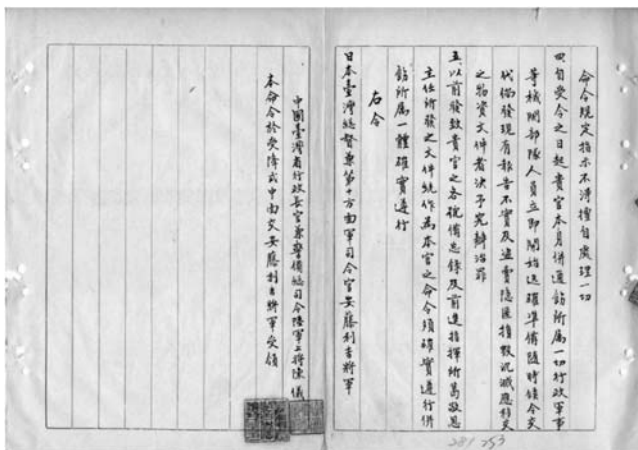 命令規定指示不得擅自處理一切
四、自受令之日起貴官本身併通飭所屬一切行政軍事
等機關部隊人員立即開始迅確準備隨時候令交
代倘發現有報告不實及盜賣隱匿損毀沉滅應移交
之物資文件者決予究辦治罪
五、以前發致貴官之各號備忘錄及前進指揮所葛敬恩
主任所發之文件統作為本官之命令須確實遵行併
飭所屬一體確實遵行
右令
日本臺灣總督兼第十方面軍司令官安藤利吉將軍
中國臺灣省行政長官兼警備總司令陸軍上將陳儀
本命令於受降式中面交安藤利吉將軍受領
281 253